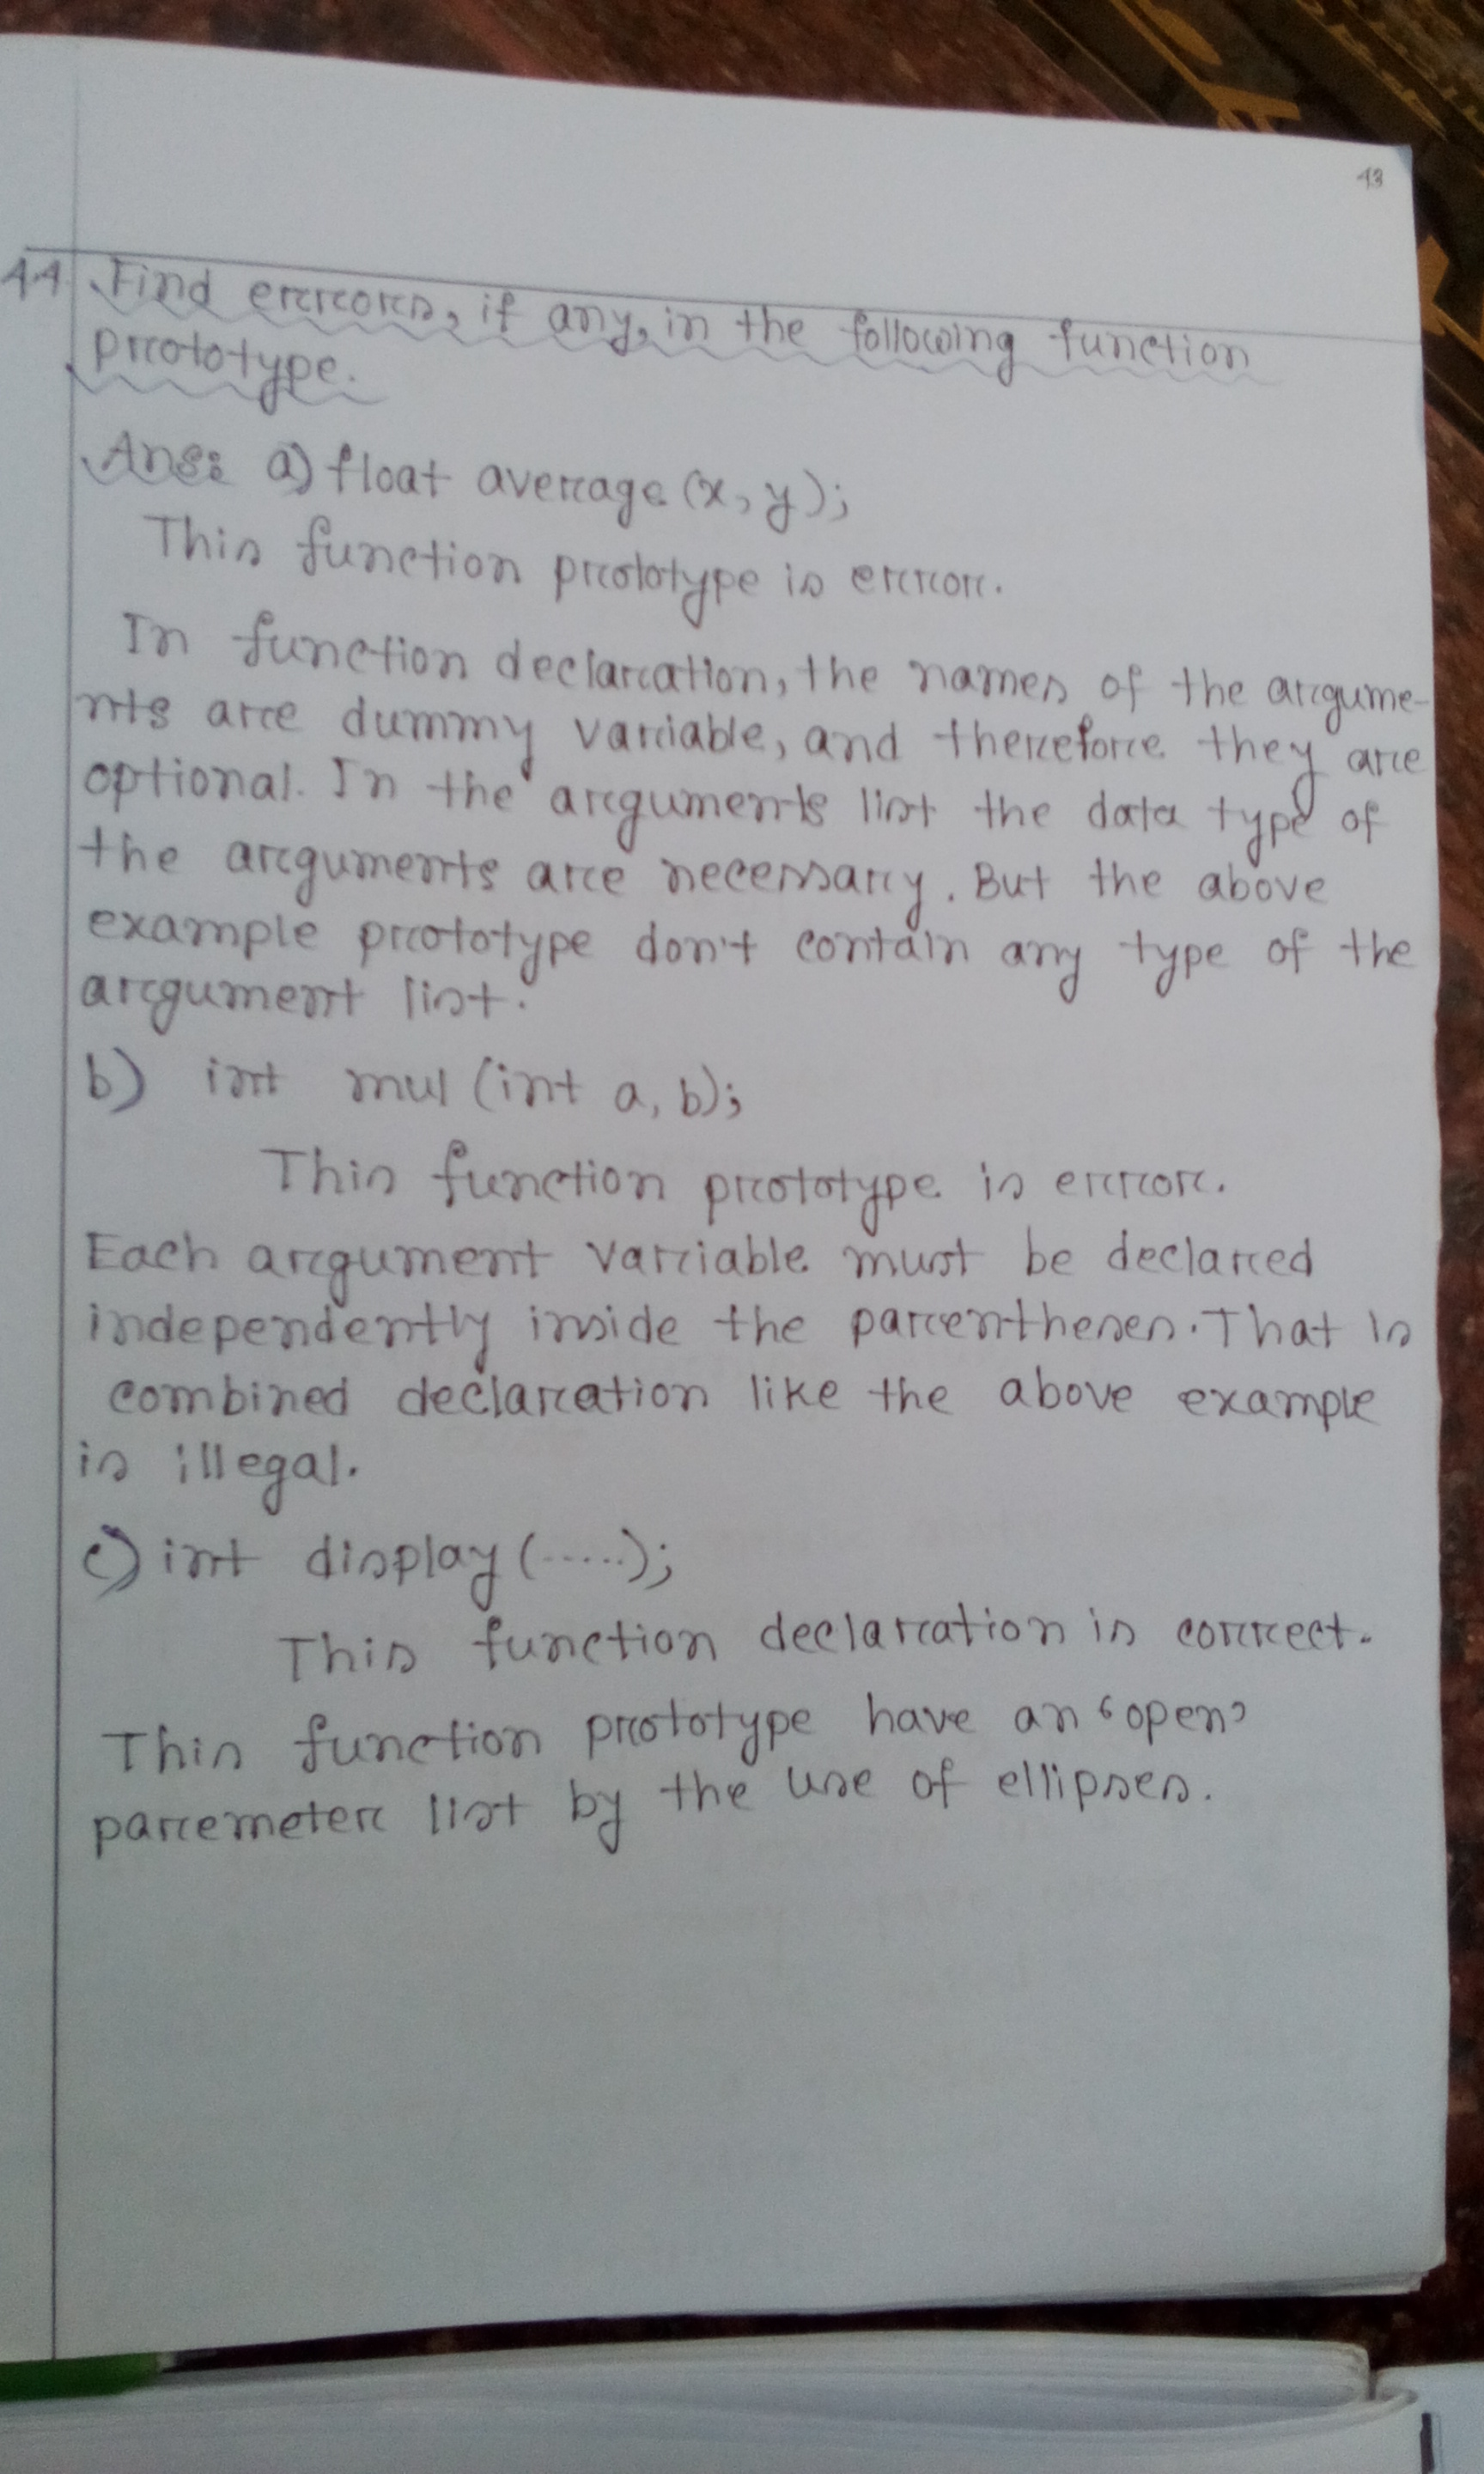 43
44. Find errors, if any, in the following function
prototype.
Ans: a) float average (x, y);
This function prototype is error.
In function declaration, the names of the argume-
nts are dummy variable, and therefore they are
optional. In the arguments list the data type of
the arguments are necessary. But the above
example prototype don't contain any type of the
argument list.
b) int mul (int a, b);
This function prototype is error.
Each argument variable must be declared
independently inside the parentheses. That is
combined declaration like the above example
is illegal.
c) int display (.....);
This function declaration is correct.
This function prototype have an 'open'
paremeter list by the use of ellipses.